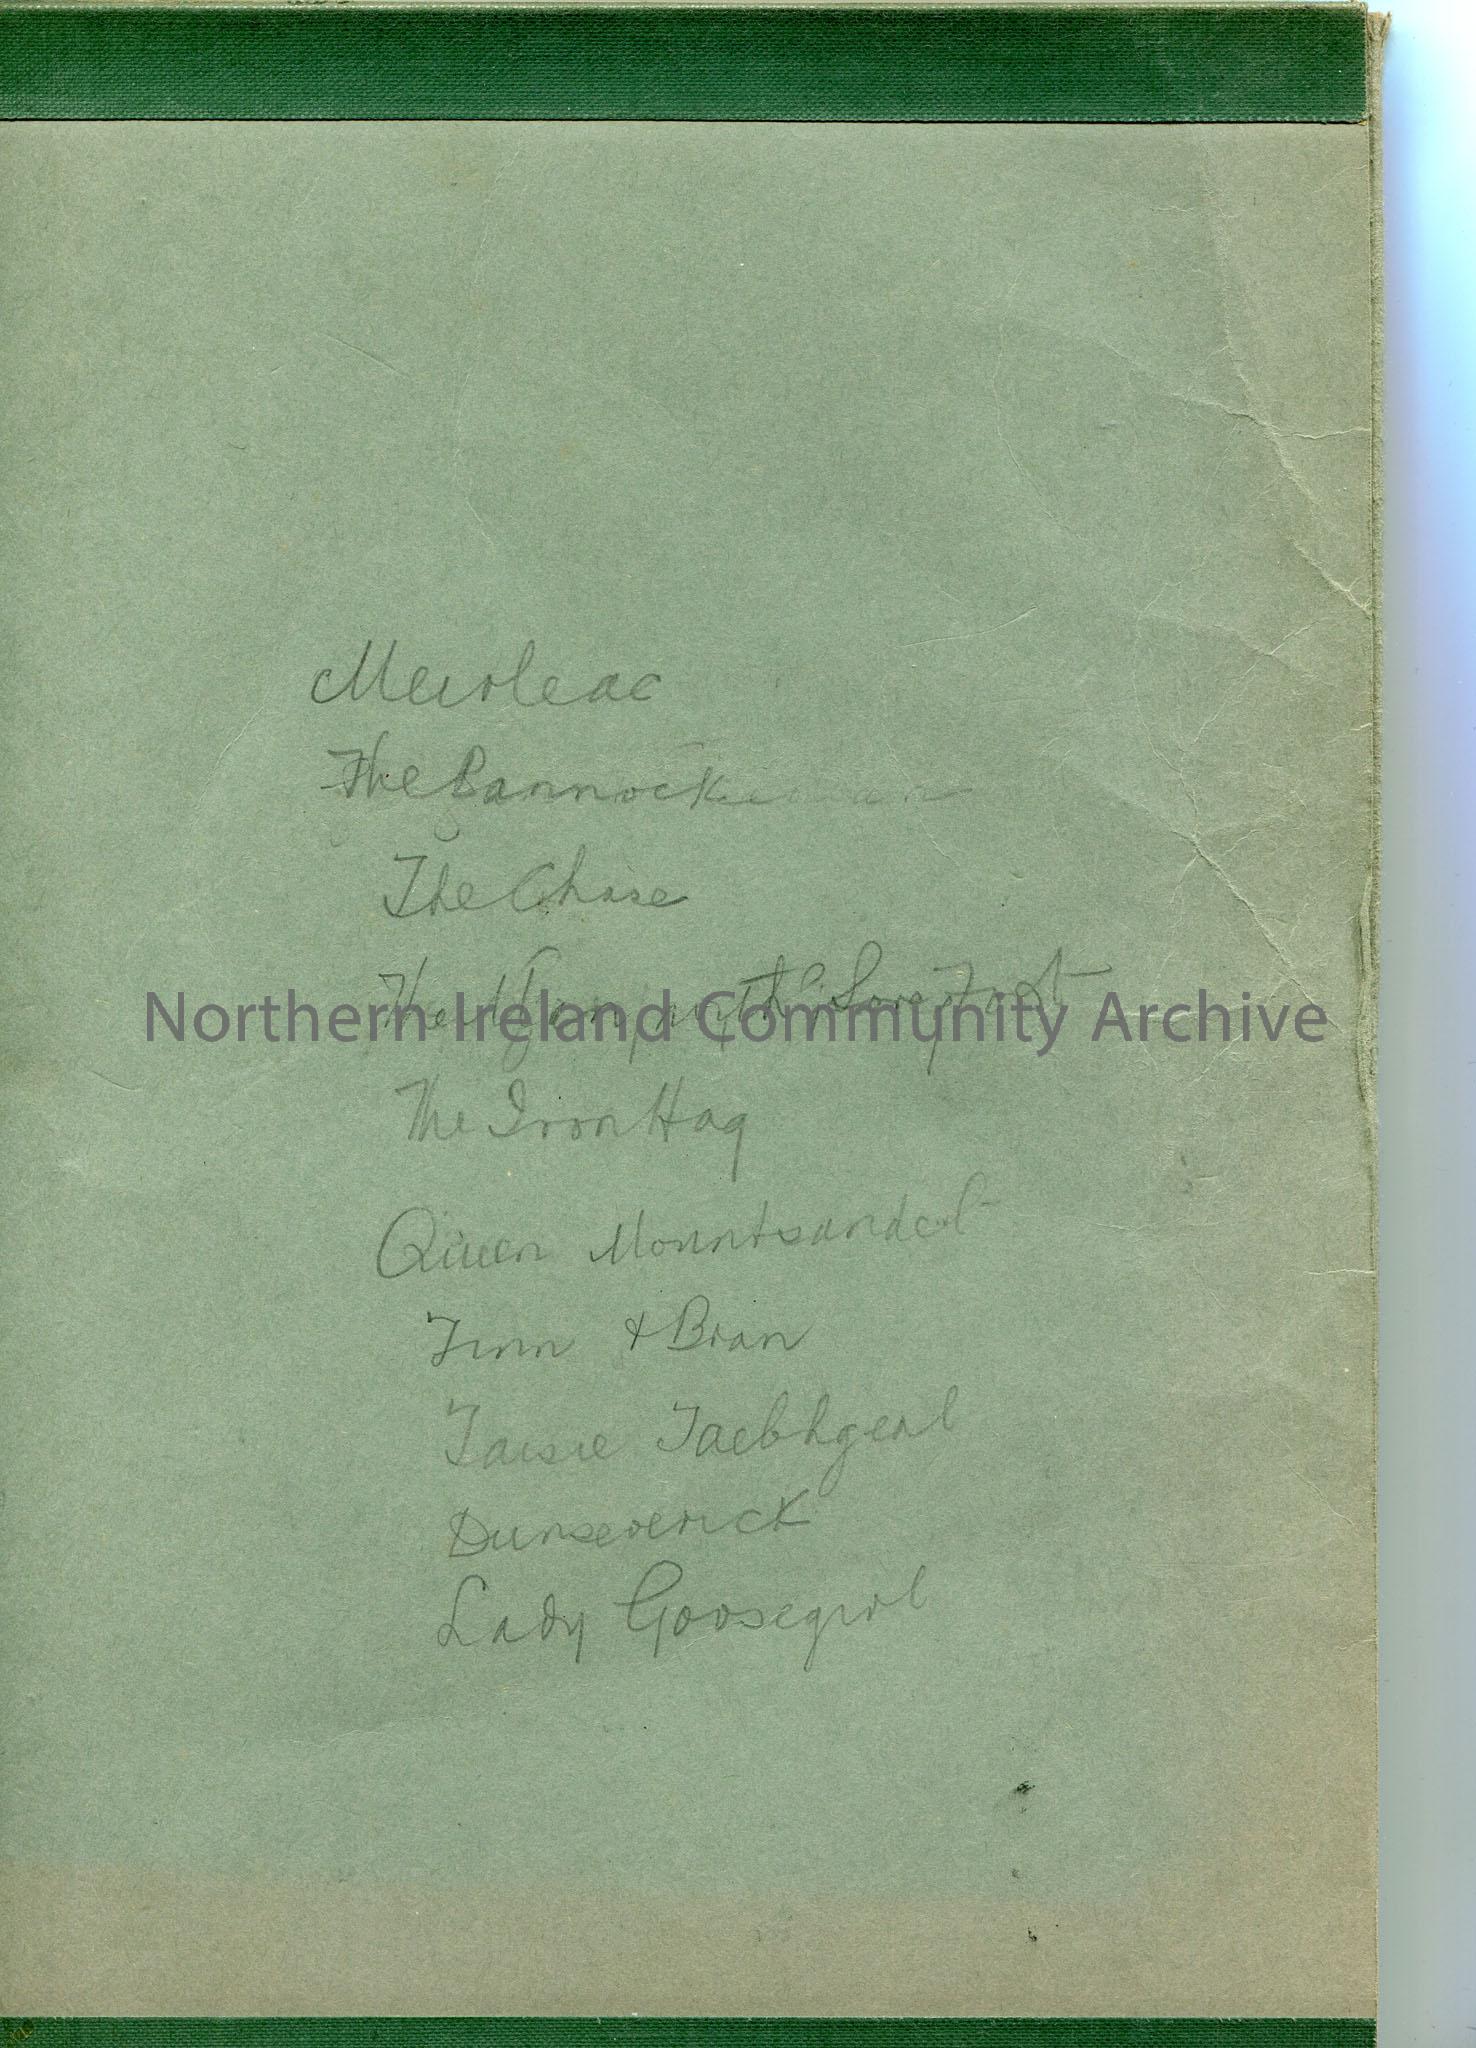 Meirleac
The Bannockman
The Chase
The Man with Sore Foot
Northern Ireland Community Archive
The Iron Hag
Queen Mountsandel
Finn & Bran
Taisie Taebhgeal
Dunseverick
Lady Goosegirl